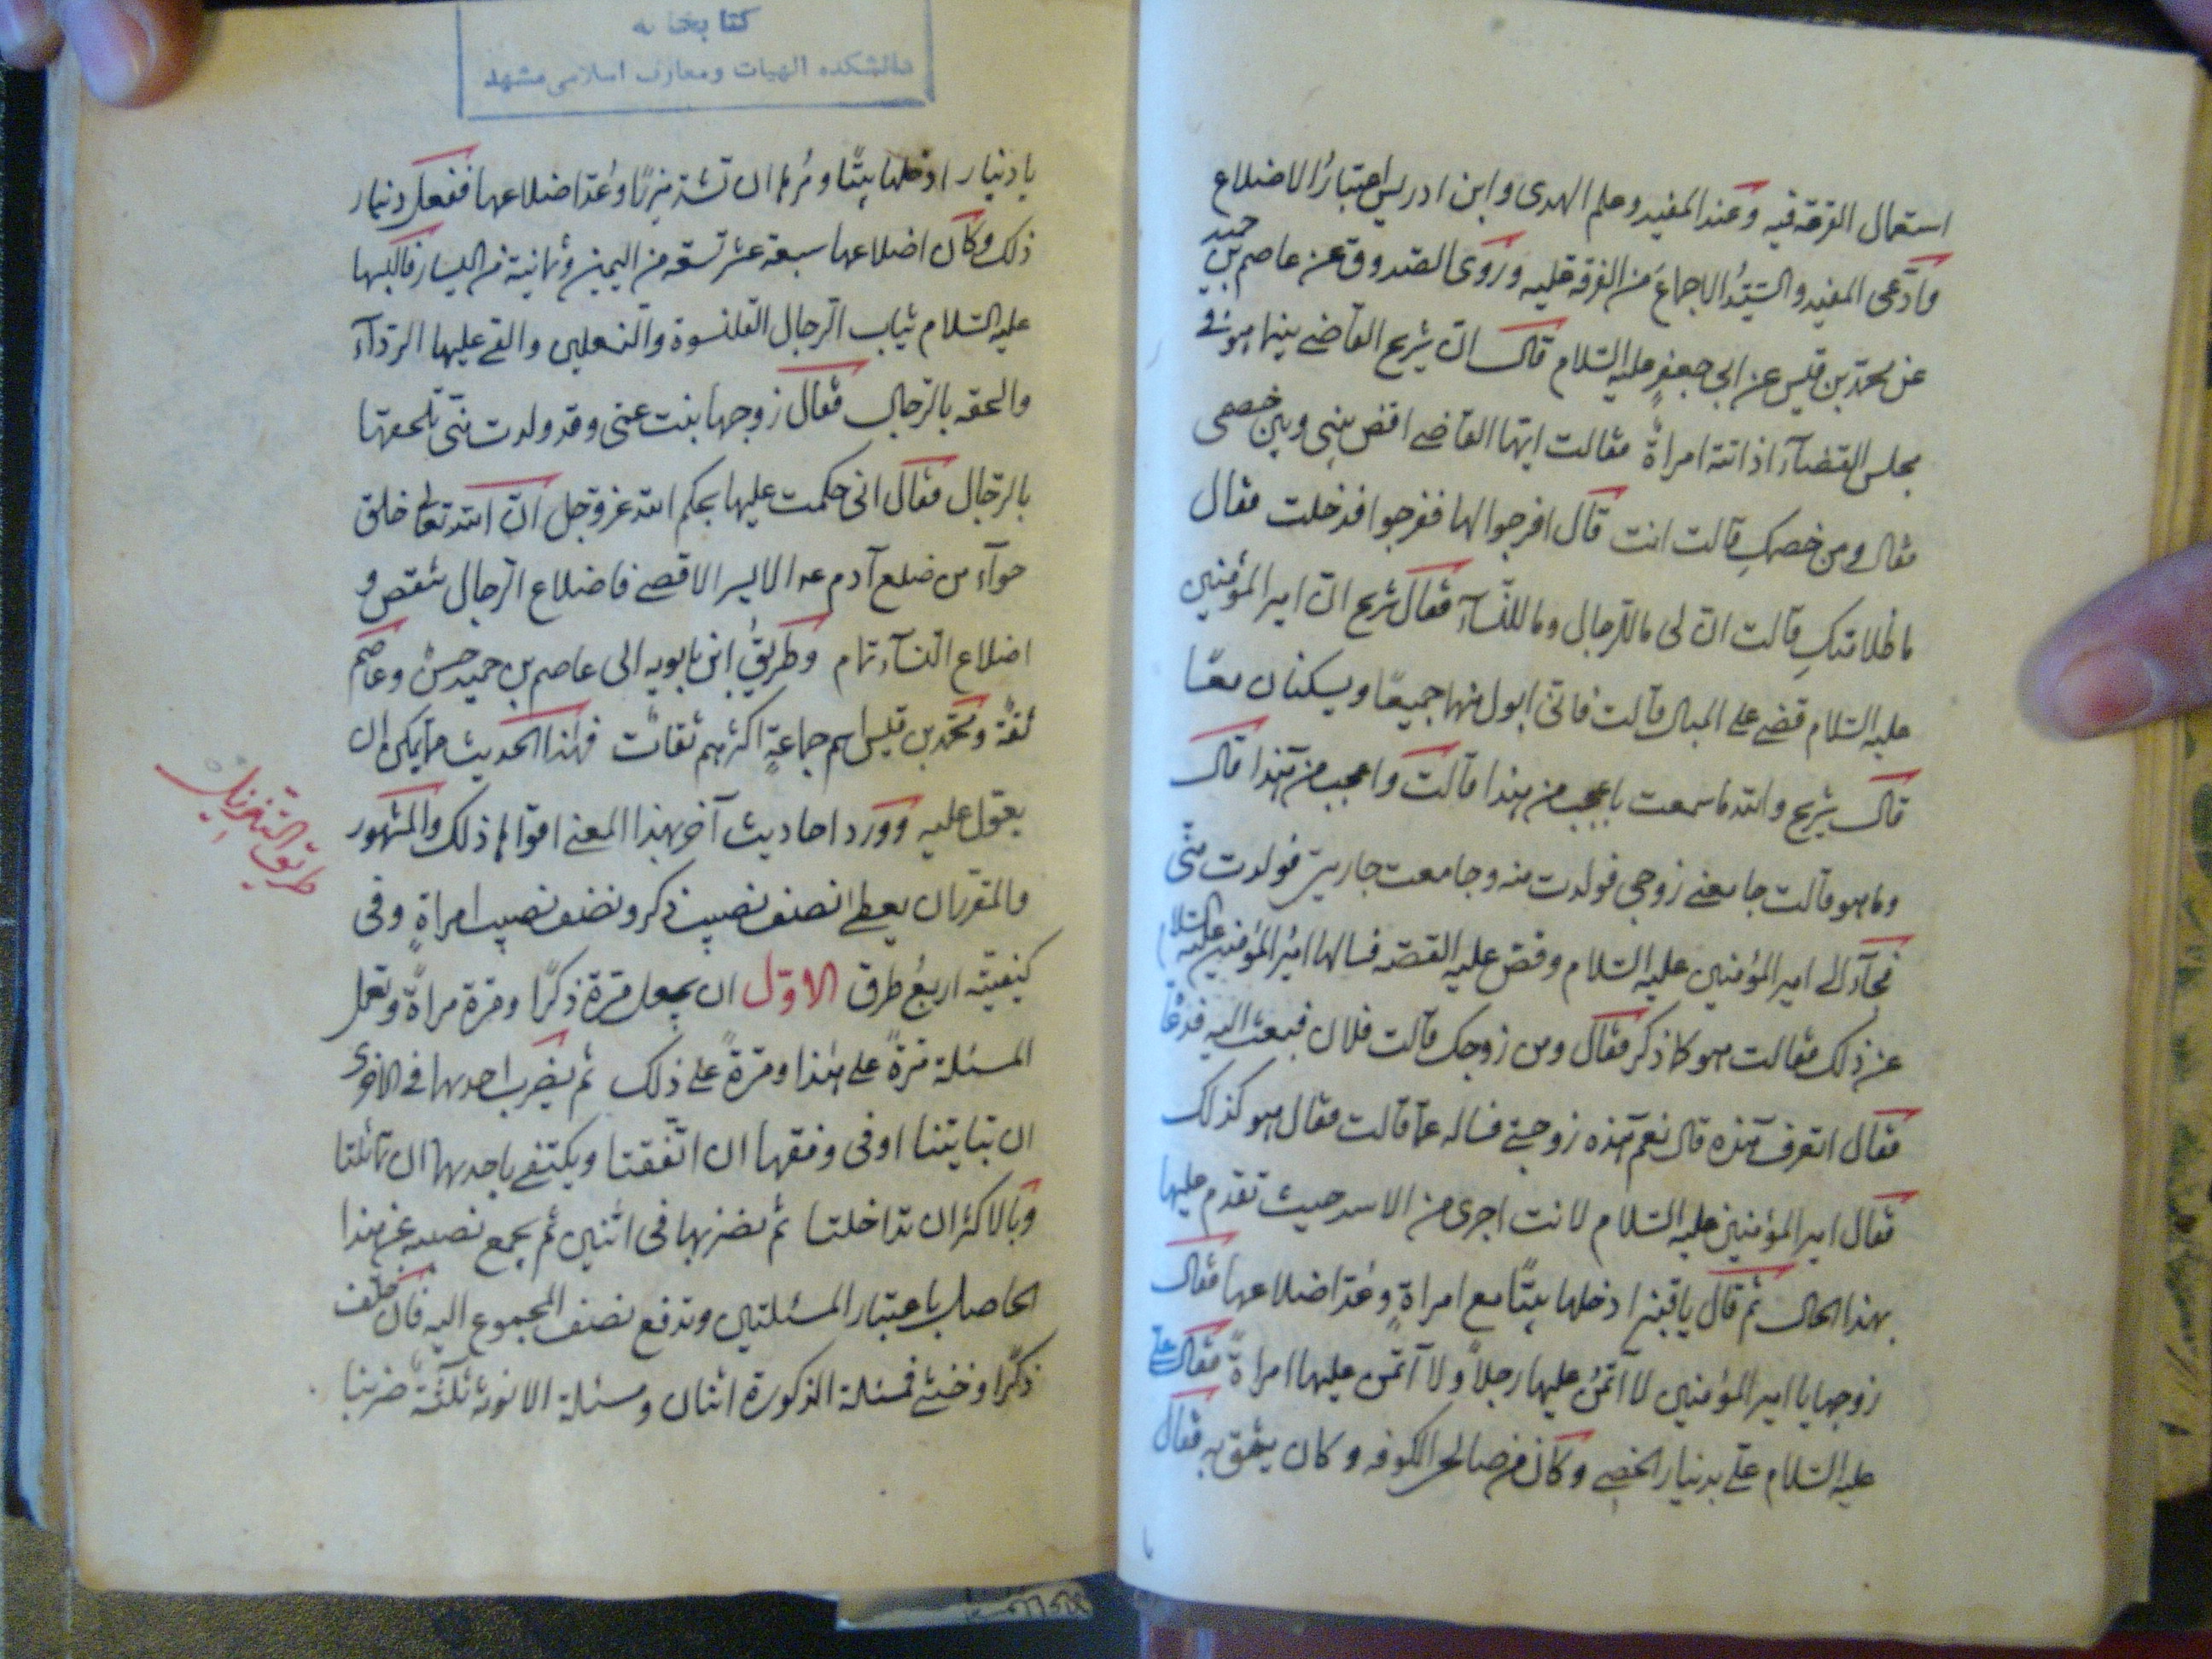 استعمال القرعة فيه وعند المفيد وعلم الهدى وابن ادريس اعتبار الاضلاع
وادّعى المفيد والسيّد الاجماع من الفرقة عليه وروى الصدوق عن عاصم بن حميد
عن محمّد بن قيس عن ابى جعفر عليه السّلام قال انّ شريح القاضى بينما هو فى
مجلس القضآء اذ اتته امراة فقالت ايّها القاضى اقض بينى وبين خصمى
فقال ومن خصمكِ قالت انت قال افرجوا لها ففرجوا فدخلت فقال
ما ظلامتكِ قالت انّ لى ما للرّجال وما للنّسآء فقال شريح انّ امير المؤمنين
عليه السّلام قضى على المبال قالت فانّى ابول منهما جميعًا ويسكنان معًا
قال شريح والله ما سمعت باعجب من هذا قالت واعجب من هذا قال
وما هو قالت جامعنى زوجى فولدت منه وجامعت جاريتى فولدت منّى
فجآء الى امير المؤمنين عليه السّلام وقصّ عليه القصّة فسالها امير المؤمنين عليه السّلام
عن ذلك فقالت هو كما ذكر فقال ومن زوجك قالت فلان فبعث اليه فدعا
فقال اتعرف هذه قال نعم هذه زوجتى فساله عمّا قالت فقال هو كذلك
فقال امير المؤمنين عليه السّلام لانت اجرى من الاسد حيث تقدم عليها
بهذا الحال ثم قال يا قنبر ادخلها بيتًا مع امراةٍ وعدّ اضلاعها فقال
زوجها يا امير المؤمنين لا آتمن عليها رجلاً ولا آتمن عليها امراةً فقال على
عليه السّلام علىّ بدينار الخصى وكان من صالحى الكوفه وكان يثق به فقال
كتابخانه
دانشكده الهيات ومعارف اسلامى مشهد
يا دينار ادخلها بيتًا ومُرها ان تشدّ مئزرًا وعُدّ اضلاعها ففعل دينار
ذلك وكان اضلاعها سبعة عشر تسعة من اليمين وثمانية من اليسار فالبسها
عليه السّلام ثياب الرّجال القلنسوة والنّعلين والقى عليها الردآء
والحقه بالرّجال فقال زوجها بنت عمّى وقد ولدت منّى تلحقها
بالرّجال فقال انى حكمت عليها بحكم الله عزّ وجل انّ الله تعالى خلق
حوآء من ضلع آدم عه الايسر الاقصى فاضلاع الرّجال تنقص و
اضلاع النسآء تمام وطريق ابن بابويه الى عاصم بن حميد حسنٌ وعاصم
ثقة ومحمّد بن قيس اسم جماعةٍ اكثرهم ثقات فهذا الحديث ممّا يمكن ان
يعوّل عليه وورد احاديث آخر بهذا المعنى اقواها ذلك والمشهور
والمقر ان يعطى نصف نصيب ذكر ونصف نصيب امراةٍ وفى
كيفيّته اربع طرق الاوّل ان يجعل مرة ذكرًا ومرة مراةً وتعمل
المسئلة مرةً على هذا ومرةً على ذلك ثم يضرب احديهما فى الاخرى
ان تباينتا او فى وفقها ان اتّفقتا ويكتفى باحديهما ان تماثلتا
وبالاكثر ان تداخلتا ثم نضربها فى اثنين ثم يجمع نصيبه عن هذا
الحاصل باعتبار المسئلتين وتدفع نصف المجموع اليه فان خلّف
ذكرًا وخنثى فمسئلة الذكورة اثنان ومسئلة الانوثة ثلثةٌ ضربنا
طريق التنزيل